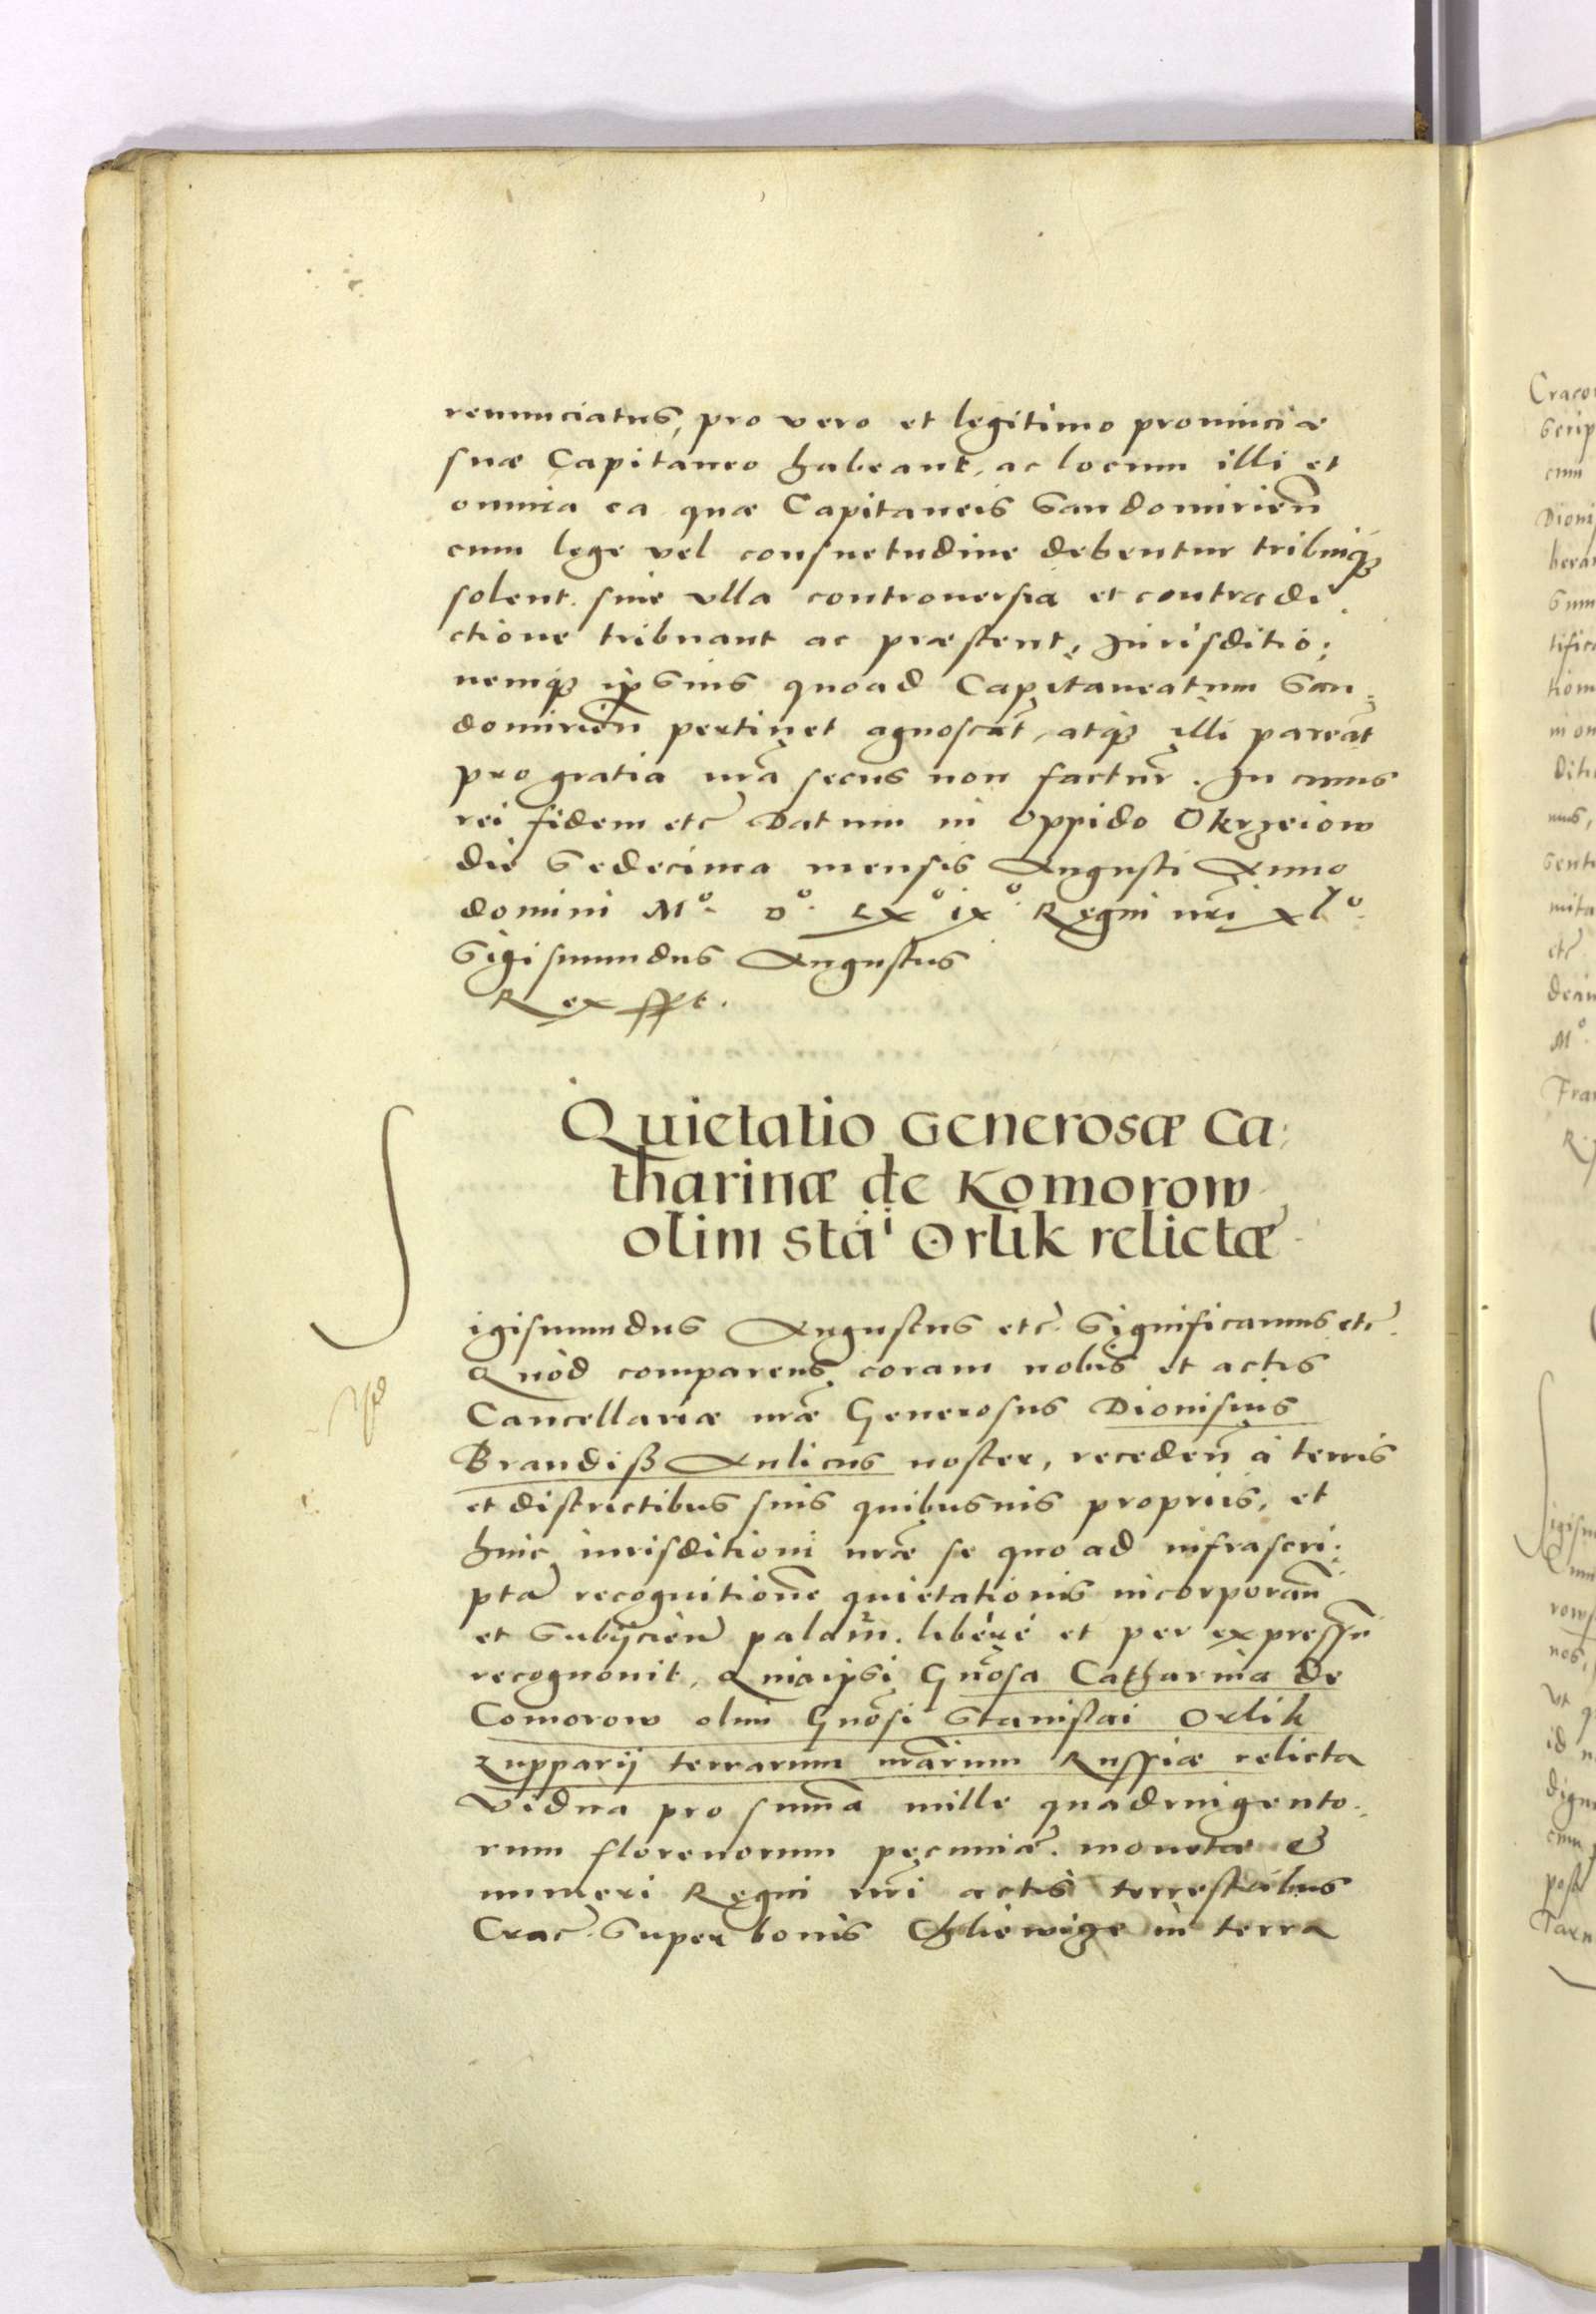 renunciatus, pro vero et legitimo prouinciæ
suæ Capitaneo habeant, ac locum illi et
omnia ea quæ Capitaneis Sandomirien̄
cum lege vel consuetudine debentur tribuiqꝫ
solent. sine vlla controuersia et contradi
ctione tribuant ac præstent, Jurisditio:
nemqꝫ ipsius quoad Capitaneatum San:
domirien̄ pertinet agnoscāt, atqꝫ illi pareāt
pro gratia nr̄a secus non factur̄. In cuius
rei fidem etc̄ Datum in oppido Okrzeiow
die Sedecima mensis Augusti Anno
domini Mº. Dº. LXºixº. Regni nr̄i xlº.
Sigismundus Augustus
Rex sspt.
Quietatio Generosæ Ca:
tharinæ de Komorow
olim Sta: Orlik relictæ
Sigismundus Augustus etc̄. Significamus etc̄.
Quod comparens coram nobis et actis
Cancellariæ nr̄æ Generosus Dionisius
Brandiß Aulicus noster, receden̄ à terris
et districtibus suis quibusuis propriis, et
huic iurisditioni nr̄æ se quo ad infrascri:
ptā recognitionē quietationis incorporan̄
et Subijcien̄ palam. liberè et per expressū
recognouit, Quia ipsi Gn̄osa Catharina de
Comorow olim Gn̄osi Stanislai Orlik
zupparij terrarum nr̄arum Russiæ relicta
vidua pro summā mille quadringento:
rum florenorum pecuniæ. monetæ &
numeri Regni nr̄i actis terrestribus
Crac̄. Super bonis Chliewige in terra